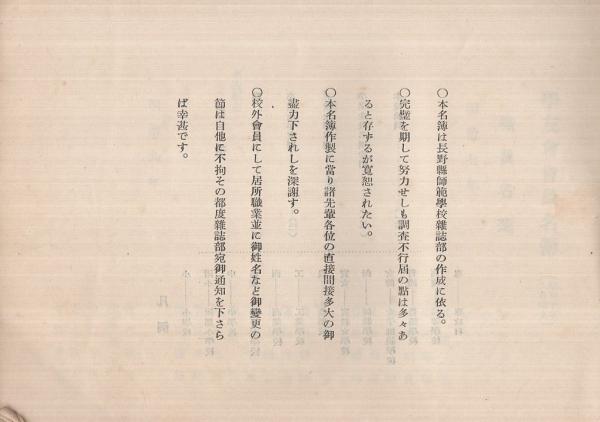 〇本名簿は長野縣師範學校雜誌部の作成に依る。
〇完璧を期して努力せしも調査不行屆の點は多々あ
ると存ずるが寬恕されたい。
〇本名簿作製に當り諸先輩各位の直接間接多大の御
盡力下されしを深謝す。
〇校外會員にして居所職業並に御姓名など御變更の
節は自他に不拘その都度雜誌部宛御通知を下さら
ば幸甚です。